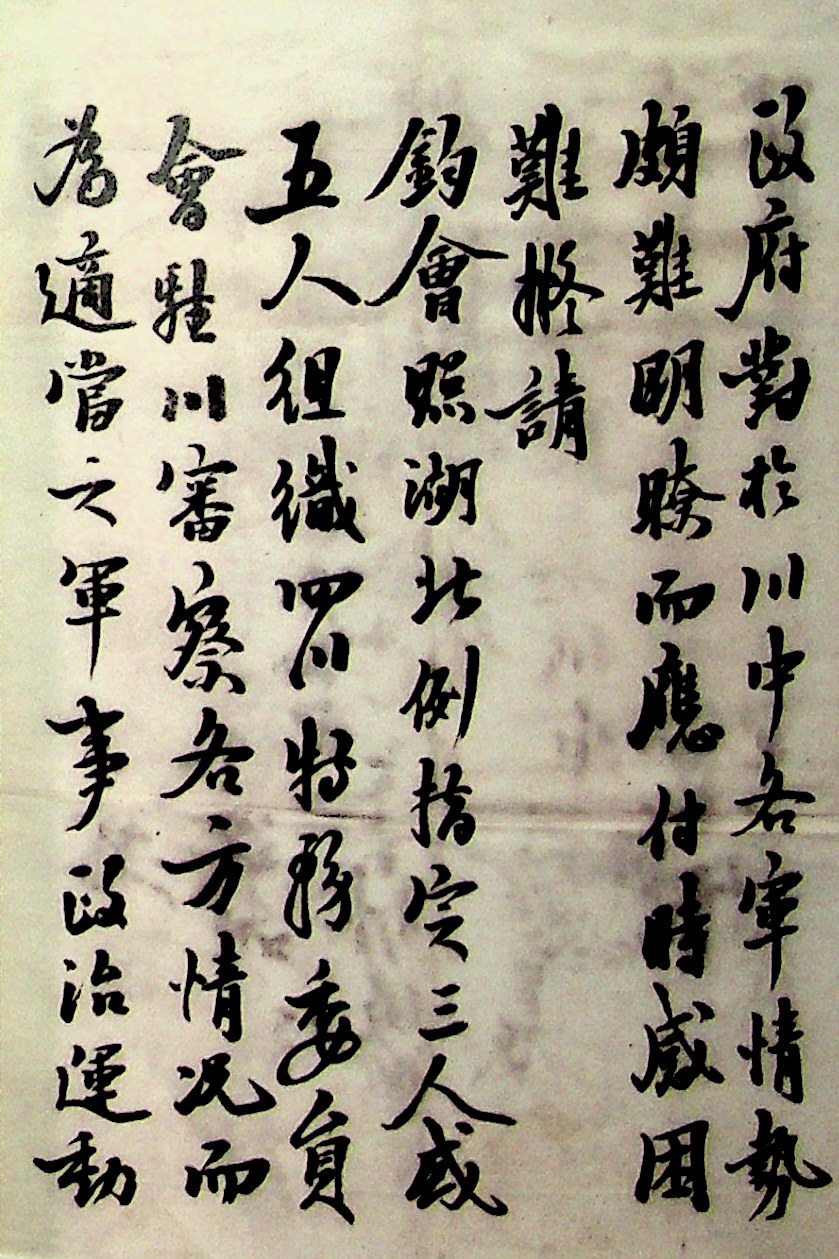 政府對於川中各軍情勢
頗難明瞭而應付時感困
難擬請
鈞會照湖北例指定三人或
五人組織四川特務委員
會駐川審察各方情况而
為適當之軍事政治運動